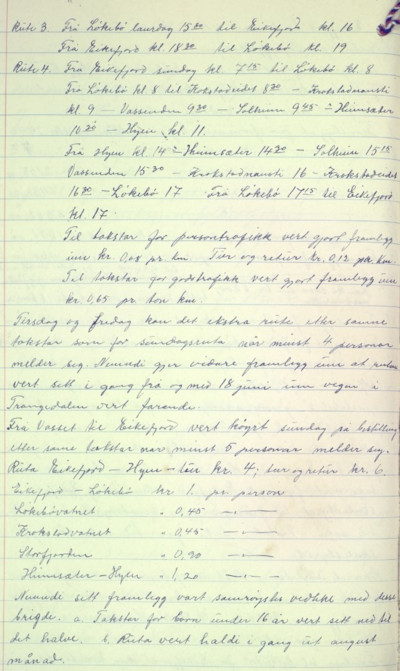 Rute 3. Frå Løkebø laurdag 15 30 til Eikefjord kl. 16
Frå Eikefjord kl. 18 30 til Løkebø kl. 19
Rute 4. Frå Eikefjord sundag kl 7 15 til Løkebø kl. 8
Frå Løkebø kl 8 til Krokstadeidet 8 30 – Krokstadnausti
kl 9 – Vassenden 9 30 – Solheim 9 45 – Himsæter
10 20 – Hyen kl. 11.
Frå Hyen kl. 14 – Himsæter 14 30 – Solheim 15 15
Vassenden 15 30 – Krokstadnausti 16 – Krokstadeidet
16 30 – Løkebø 17 Frå Løkebø 17 15 til Eikefjord
kl. 17.
Til takstar for persontrafikk vert gjort framlegg
um kr. 0,08 pr. km. Tur og retur kr. 0,12 pr. km.
Til takstar for godstrafikk vert gjort framlegg um
kr. 0,65 pr ton km.
Tirsdag og fredag kan det ekstra rute etter same
takstar som for sundagsruta når minst 4 personar
melder seg. Nemndi gjer vidare framlegg um at ruten
vert sett i gang frå og med 18 juni um vegen i
Trangedalen vert farande.
Frå Vasset til Eikefjord vert køyrt sundag på bestilling
etter same takstar når minst 5 personar melder seg.
Ruta Eikefjord – Hyen – kr. 4; tur og retur kr. 6.
Eikefjord – Løkebø kr 1. pr person
Løkebøvatnet " 0,45 – " –
Krokstadvatnet " 0,45 – " –
Storfjorden " 0,90 – " –
Himsæter – Hyen " 1,20 – " –
Nemndi sitt framlegg vart samrøystes vedteke med desse
brigde. a. Takstar for born under 16 år vert sett ned til
det halve. b. Ruta vert haldi i gang ut august
månad.